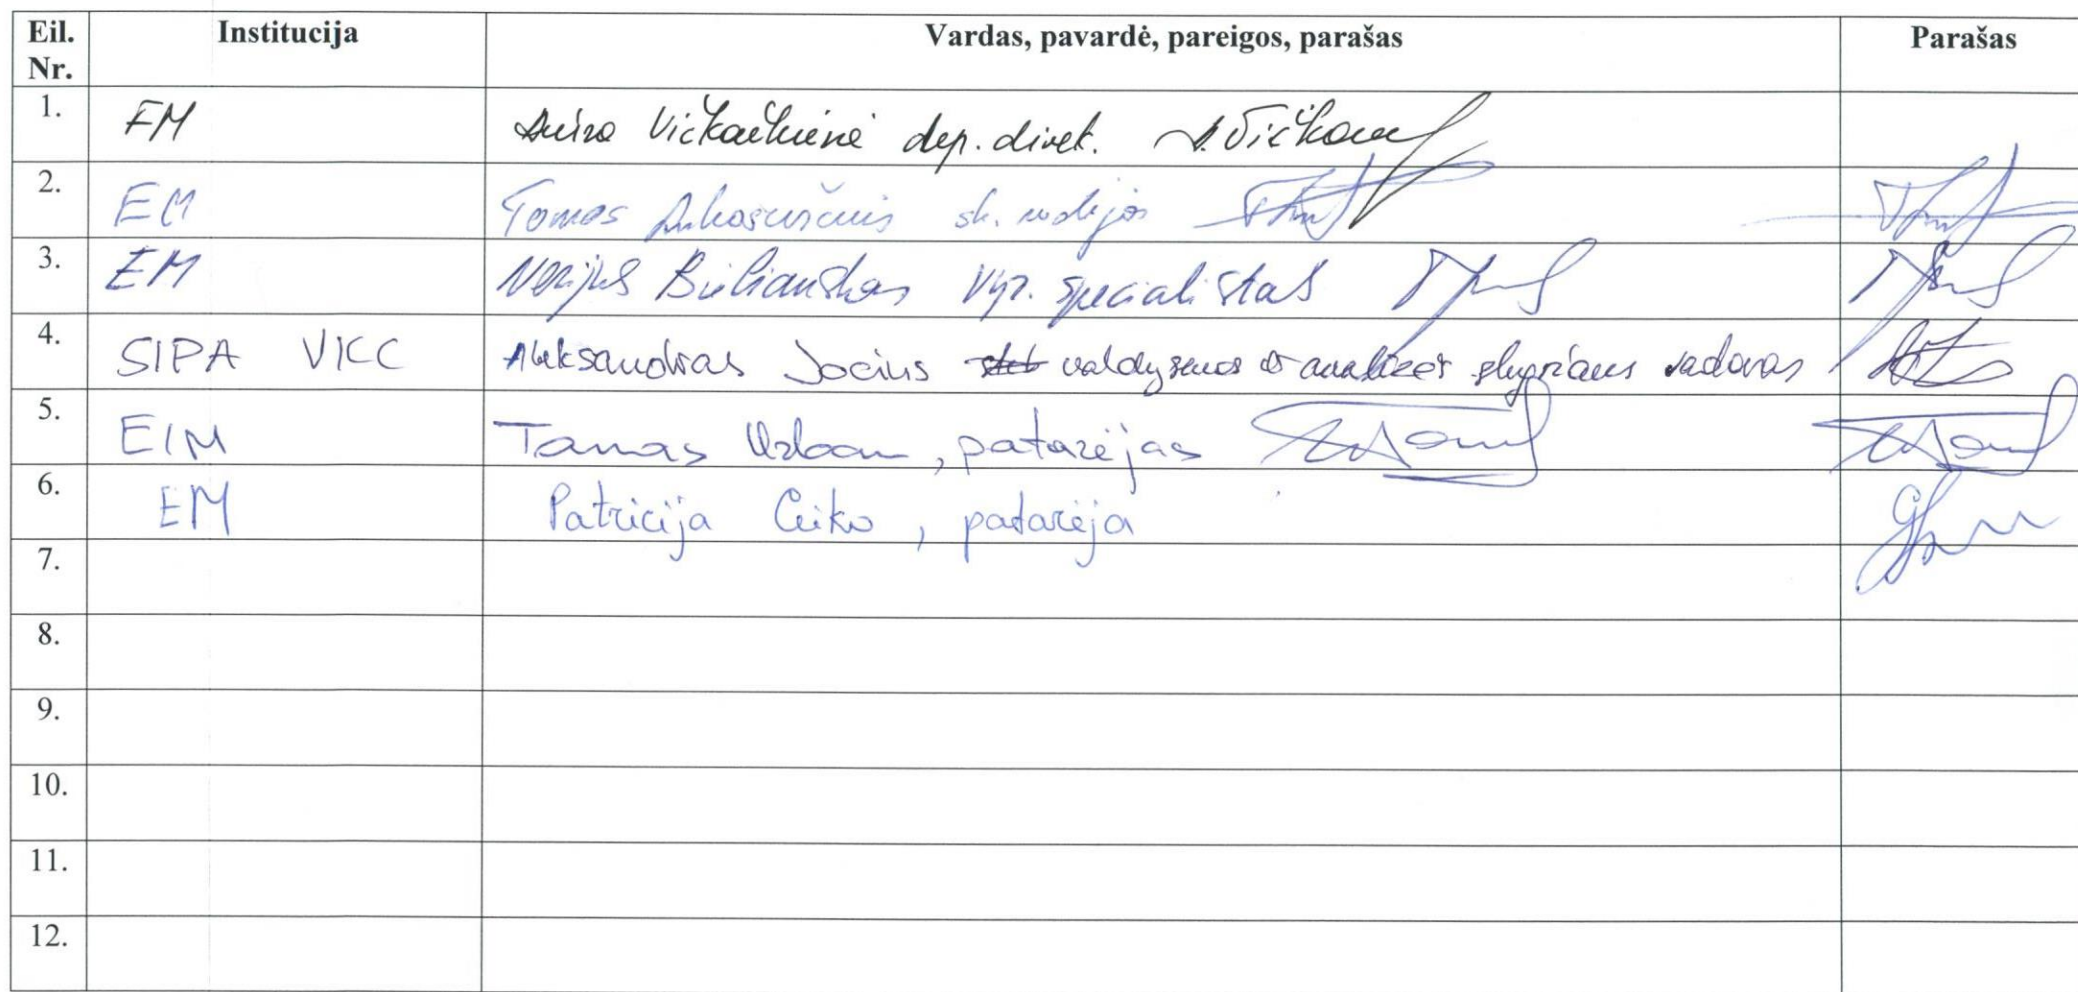 Eil. Nr. Institucija Vardas, pavardė, pareigos, parašas Parašas
1. FM Vičkačkienė dep. direk. A. Vičkač
2. EM Tomas
3. EM Nerijus Bieliauskas vyr. specialistas
4. SIPA VICC Aleksandras Jocius valdysenos ir analizės skyriaus vadovas
5. EIM Tomas Urban, patarėjas
6. EM Patricija Ceiko, patarėja
7.
8.
9.
10.
11.
12.